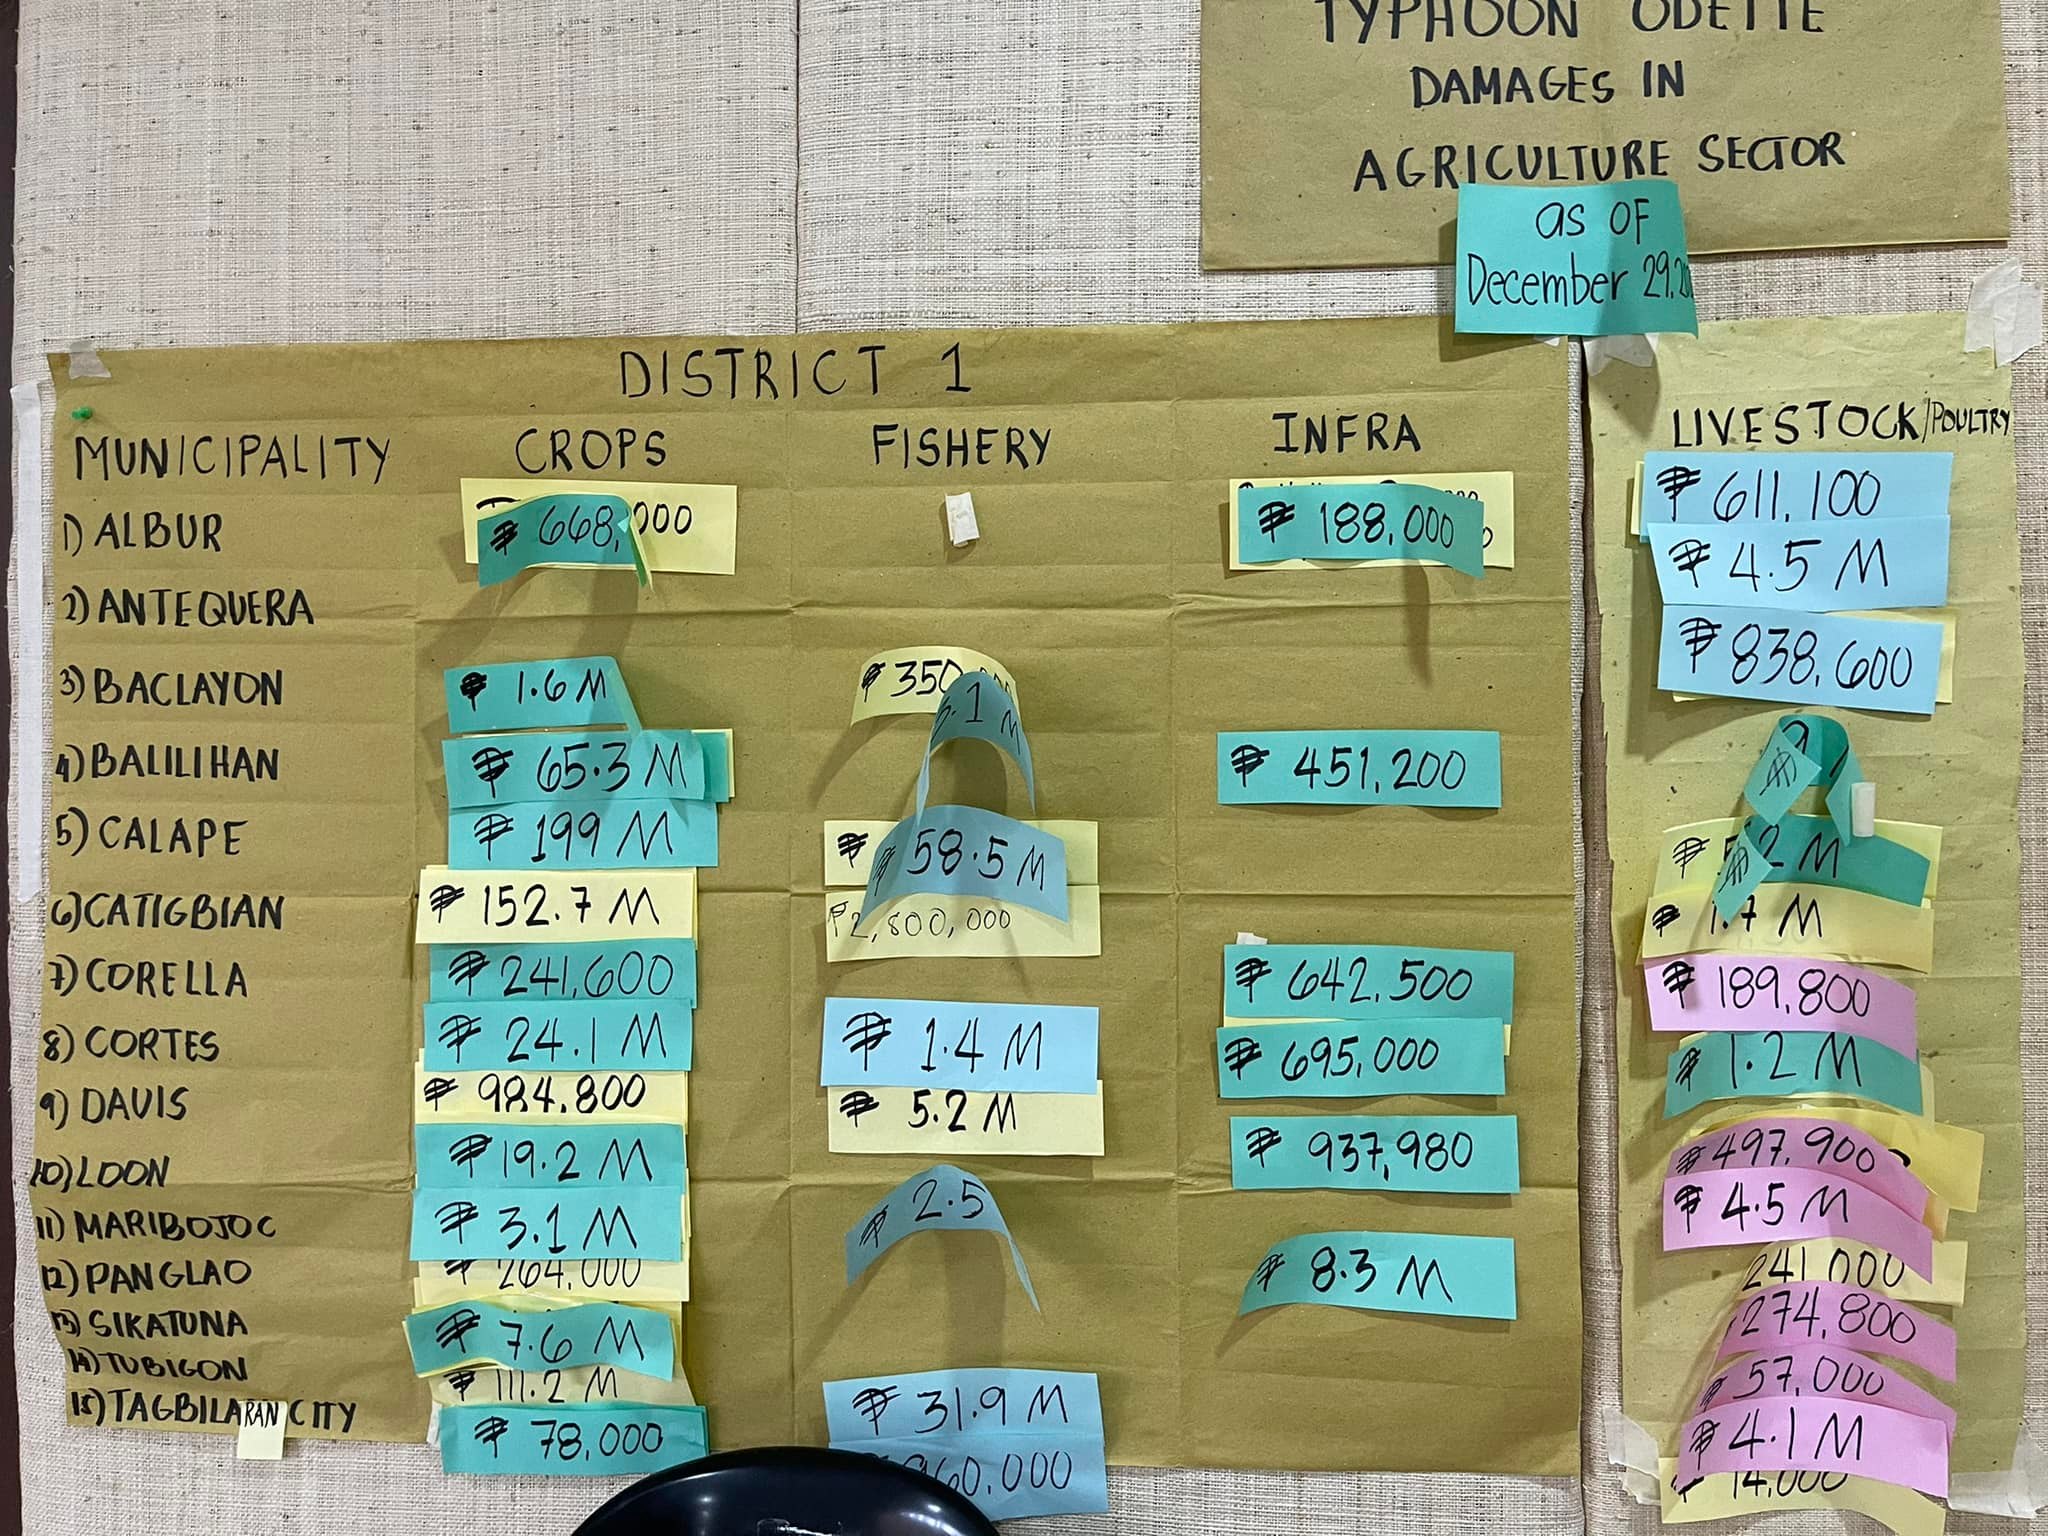 TYPHOON ODETTE
DAMAGES IN
AGRICULTURE SECTOR
as OF
December 29,
DISTRICT 1
MUNICIPALITY CROPS FISHERY INFRA LIVESTOCK/POULTRY
1) ALBUR ₱ 668,000 ₱ 188,000 ₱ 611,100
2) ANTEQUERA ₱ 4.5 M
3) BACLAYON ₱ 1.6 M ₱ 350 .1 M ₱ 838,600
4) BALILIHAN ₱ 65.3 M ₱ 451,200
5) CALAPE ₱ 199 M ₱ ₱ 58.5 M ₱ 2 M
6) CATIGBIAN ₱ 152.7 M ₱2,800,000 ₱ 1.7 M
7) CORELLA ₱ 241,600 ₱ 642,500 ₱ 189,800
8) CORTES ₱ 24.1 M ₱ 1.4 M ₱ 695,000 ₱ 1.2 M
9) DAUIS ₱ 984,800 ₱ 5.2 M ₱ 497,900
10) LOON ₱ 19.2 M ₱ 937,980 ₱ 4.5 M
11) MARIBOJOC ₱ 3.1 M ₱ 2.5 241,000
12) PANGLAO ₱ 264,000 ₱ 8.3 M 274,800
13) SIKATUNA ₱ 7.6 M ₱ 57,000
14) TUBIGON ₱ 111.2 M ₱ 31.9 M ₱ 4.1 M
15) TAGBILARAN CITY ₱ 78,000 960,000 14,000